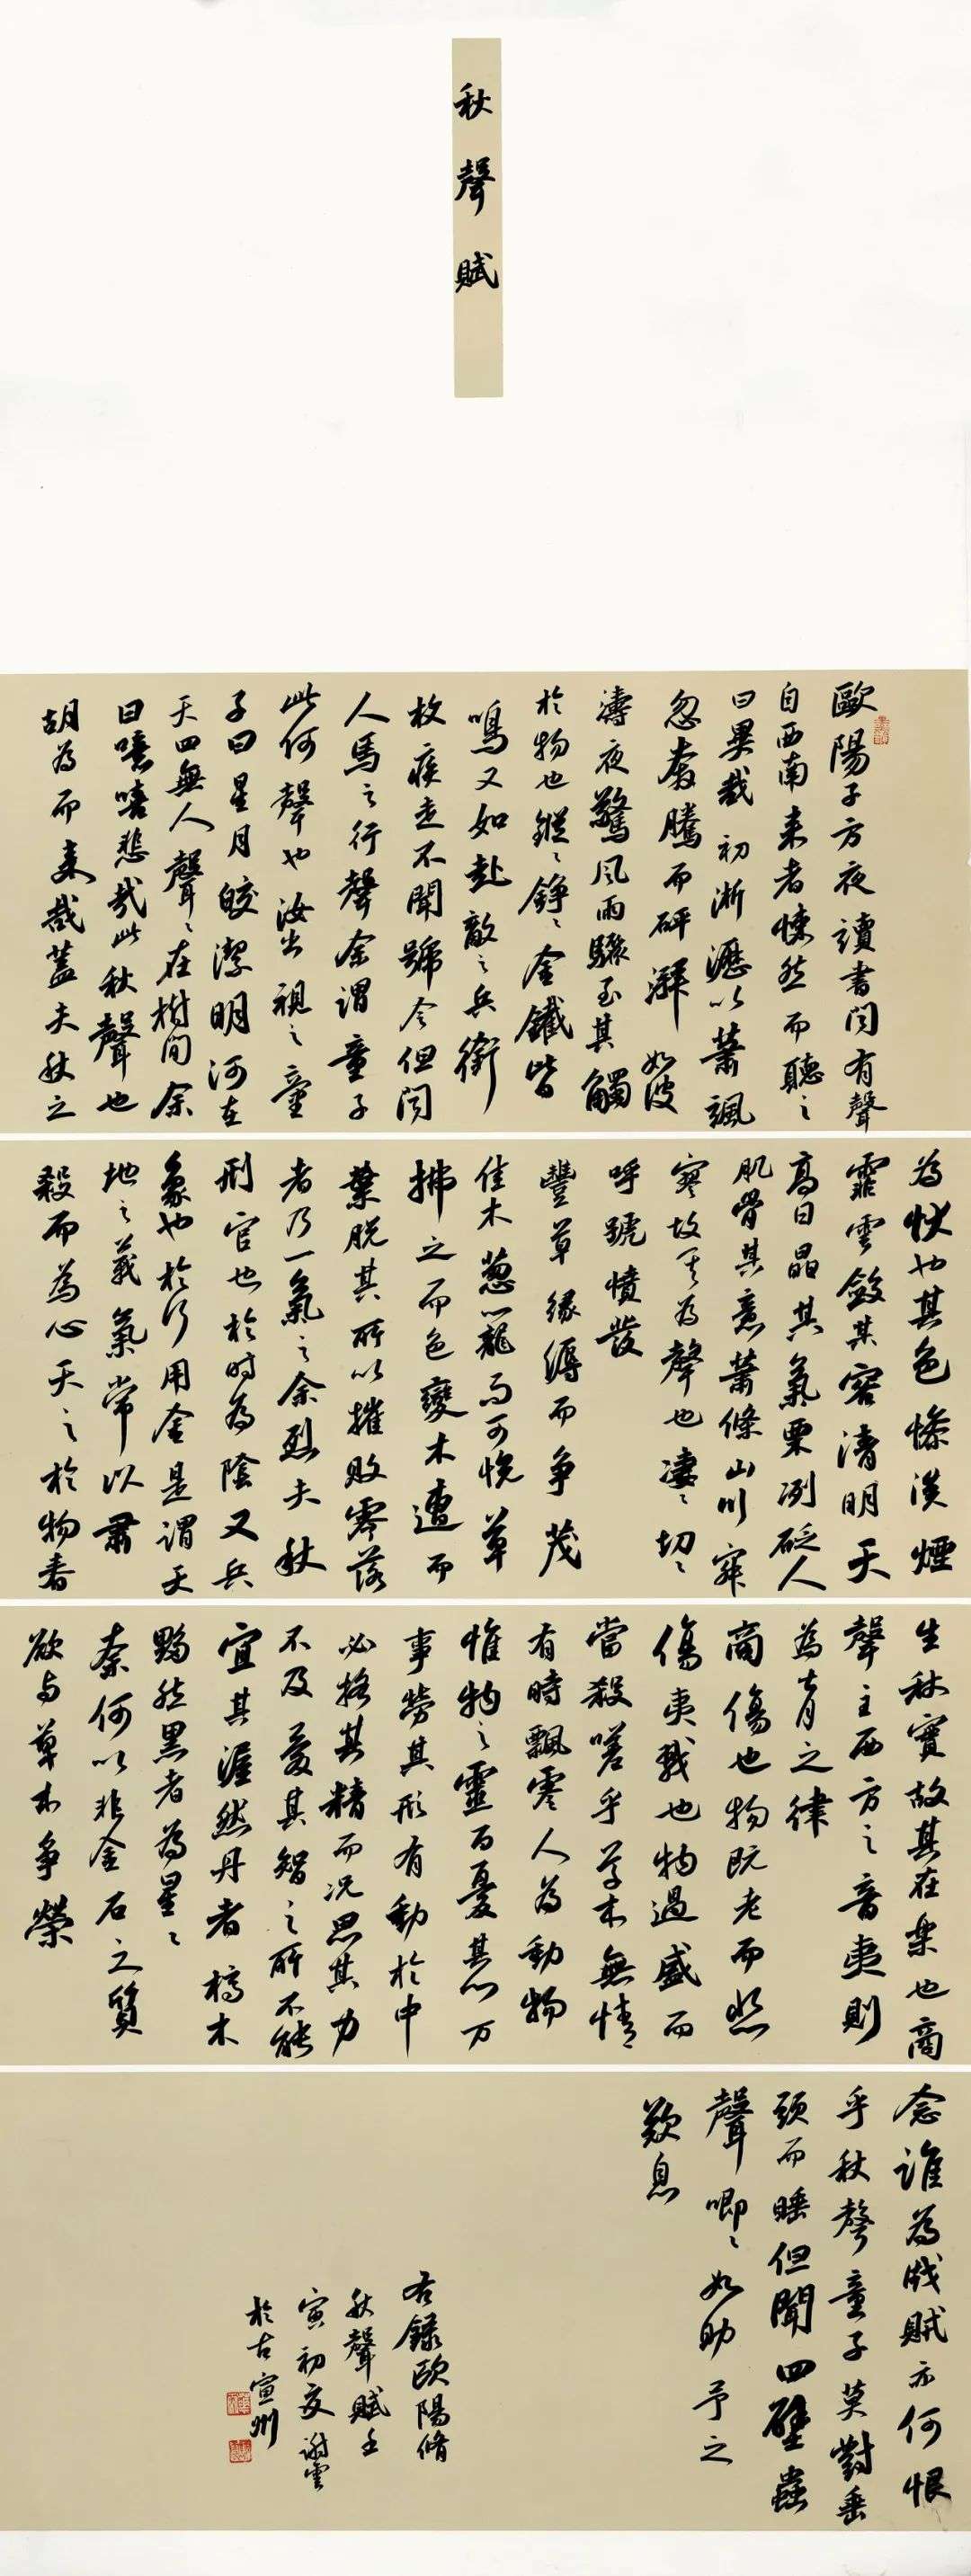 秋聲賦
歐陽子方夜讀書聞有聲
自西南来者悚然而聽之
曰異哉初淅瀝以蕭颯
忽奔騰而砰湃如波
濤夜驚風雨驟至其觸
於物也鏦〻錚〻金鐵皆
鳴又如赴敵之兵銜
枚疾走不聞號令但聞
人馬之行聲余謂童子
此何聲也汝出視之童
子曰星月皎潔明河在
天四無人聲〻在樹間余
曰噫嘻悲哉此秋聲也
胡為而来哉蓋夫秋之
為狀也其色慘淡煙
霏雲斂其容清明天
高日晶其氣栗冽砭人
肌骨其意蕭條山川寂
寥故其為聲也凄〻切〻
呼號憤發
豐草緑縟而争茂
佳木葱蘢而可悅草
拂之而色變木遭而
葉脱其所以摧敗零落
者乃一氣之余烈夫秋
刑官也於時為陰又兵
象也於行用金是謂天
地之義氣常以肅
殺而為心天之於物春
生秋實故其在樂也商
聲主西方之音夷則
為七月之律
商傷也物既老而悲
傷夷戮也物過盛而
當殺嗟乎草木無情
有時飄零人為動物
惟物之靈百憂其心万
事勞其形有動於中
必摇其精而况思其力
不及憂其智之所不能
宜其渥然丹者槁木
黟然黑者為星〻
奈何以非金石之質
欲与草木争榮
念誰為戕賊亦何恨
乎秋聲童子莫對垂
頭而睡但聞四壁蟲
聲唧〻如助予之
歎息
右錄歐陽脩
秋聲賦壬
寅初夏謝雲
於古宣州